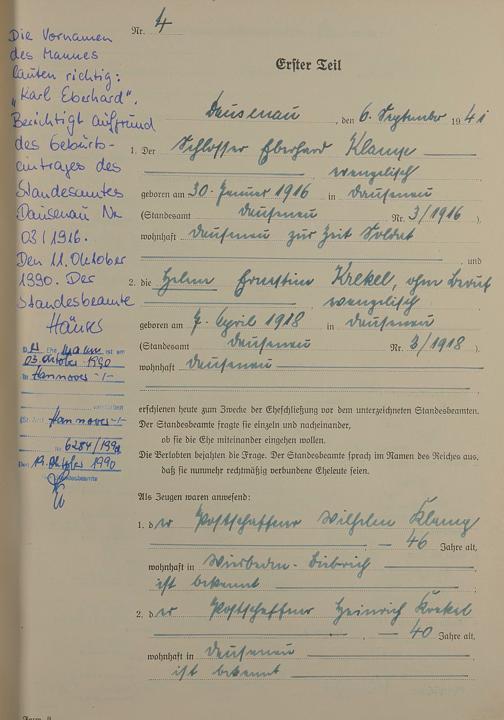 Die Vornamen
des Mannes
lauten richtig:
"Karl Eberhard".
Berichtigt aufgrund
des Geburts-
eintrages des
Standesamtes
Dausenau Nr.
03/1916.
Den 11. Oktober
1990. Der
Standesbeamte
Der Ehemann ist am
03. Oktober 1990
in Hannover -I-
verstorben
(St. Amt Hannover -I-
Nr. 6284/1990
Den 19. Oktober 1990
Standesbeamte
Nr. 4
Erster Teil
Dausenau, den 6. September 1941
1. Der Schlosser Eberhard Klamp
evangelisch
geboren am 30. Januar 1916 in Dausenau
(Standesamt Dausenau Nr. 3/1916)
wohnhaft Dausenau zur Zeit Soldat
, und
2. die Helene Ernestine Krekel, ohne Beruf
evangelisch
geboren am 7. April 1918 in Dausenau
(Standesamt Dausenau Nr. 3/1918)
wohnhaft Dausenau
erschienen heute zum Zwecke der Eheschließung vor dem unterzeichneten Standesbeamten.
Der Standesbeamte fragte sie einzeln und nacheinander,
ob sie die Ehe miteinander eingehen wollen.
Die Verlobten bejahten die Frage. Der Standesbeamte sprach im Namen des Reiches aus,
daß sie nunmehr rechtmäßig verbundene Eheleute seien.
Als Zeugen waren anwesend:
1. der Postschaffner Wilhelm Klamp
46 Jahre alt,
wohnhaft in Wiesbaden-Biebrich
ist bekannt
2. der Postschaffner Heinrich Krekel
40 Jahre alt,
wohnhaft in Dausenau
ist bekannt